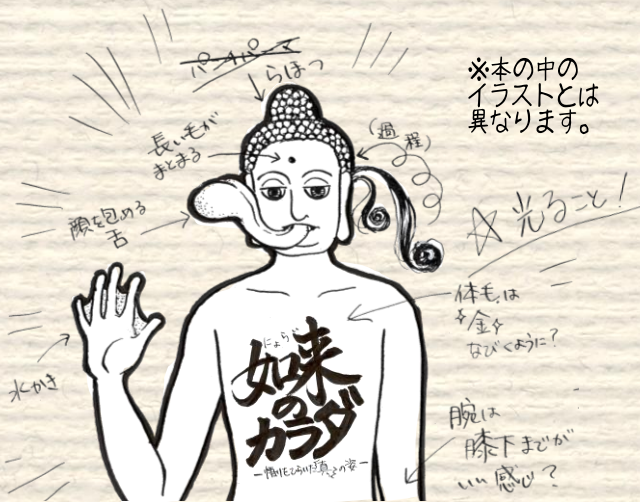 パンチパーマ
らほつ
※本の中の
イラストとは
異なります。
長い毛が
まとまる
(過程)
顔を包める
舌
☆光ること!
体毛は
金
なびくように?
水かき
にょらい
如来
の
カラダ
ー悟りをひらいた真の姿ー
腕は
膝下までが
いい感じ?